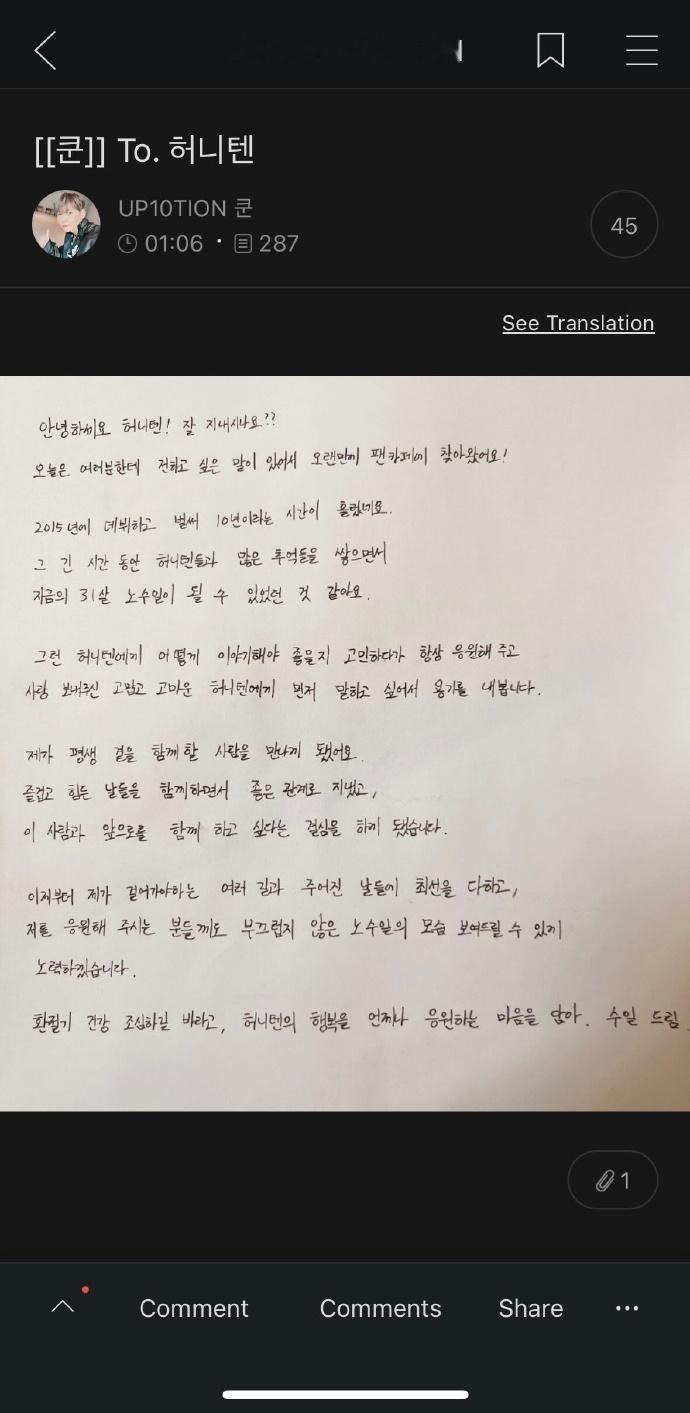 [[쿤]] To. 허니텐
UP10TION 쿤
01:06 · 287
45
See Translation
안녕하세요 허니텐! 잘 지내시나요??
오늘은 여러분한테 전하고 싶은 말이 있어서 오랜만에 팬카페에 찾아왔어요!
2015년에 데뷔하고 벌써 10년이라는 시간이 흘렀네요.
그 긴 시간 동안 허니텐들과 많은 추억들을 쌓으면서
지금의 31살 노수일이 될 수 있었던 것 같아요.
그런 허니텐에게 어떻게 이야기해야 좋을지 고민하다가 항상 응원해 주고
사랑 보내주신 고맙고 고마운 허니텐에게 먼저 말하고 싶어서 용기를 내봅니다.
제가 평생 길을 함께 할 사람을 만나게 됐어요.
즐겁고 힘든 날들을 함께하면서 좋은 관계로 지냈고,
이 사람과 앞으로를 함께 하고 싶다는 결심을 하게 됐습니다.
이제부터 제가 걸어가야하는 여러 길과 주어진 날들에 최선을 다하고,
저를 응원해 주시는 분들께도 부끄럽지 않은 노수일의 모습 보여드릴 수 있게
노력하겠습니다.
환절기 건강 조심하길 바라고, 허니텐의 행복을 언제나 응원하는 마음을 담아. 수일 드림.
1
Comment
Comments
Share